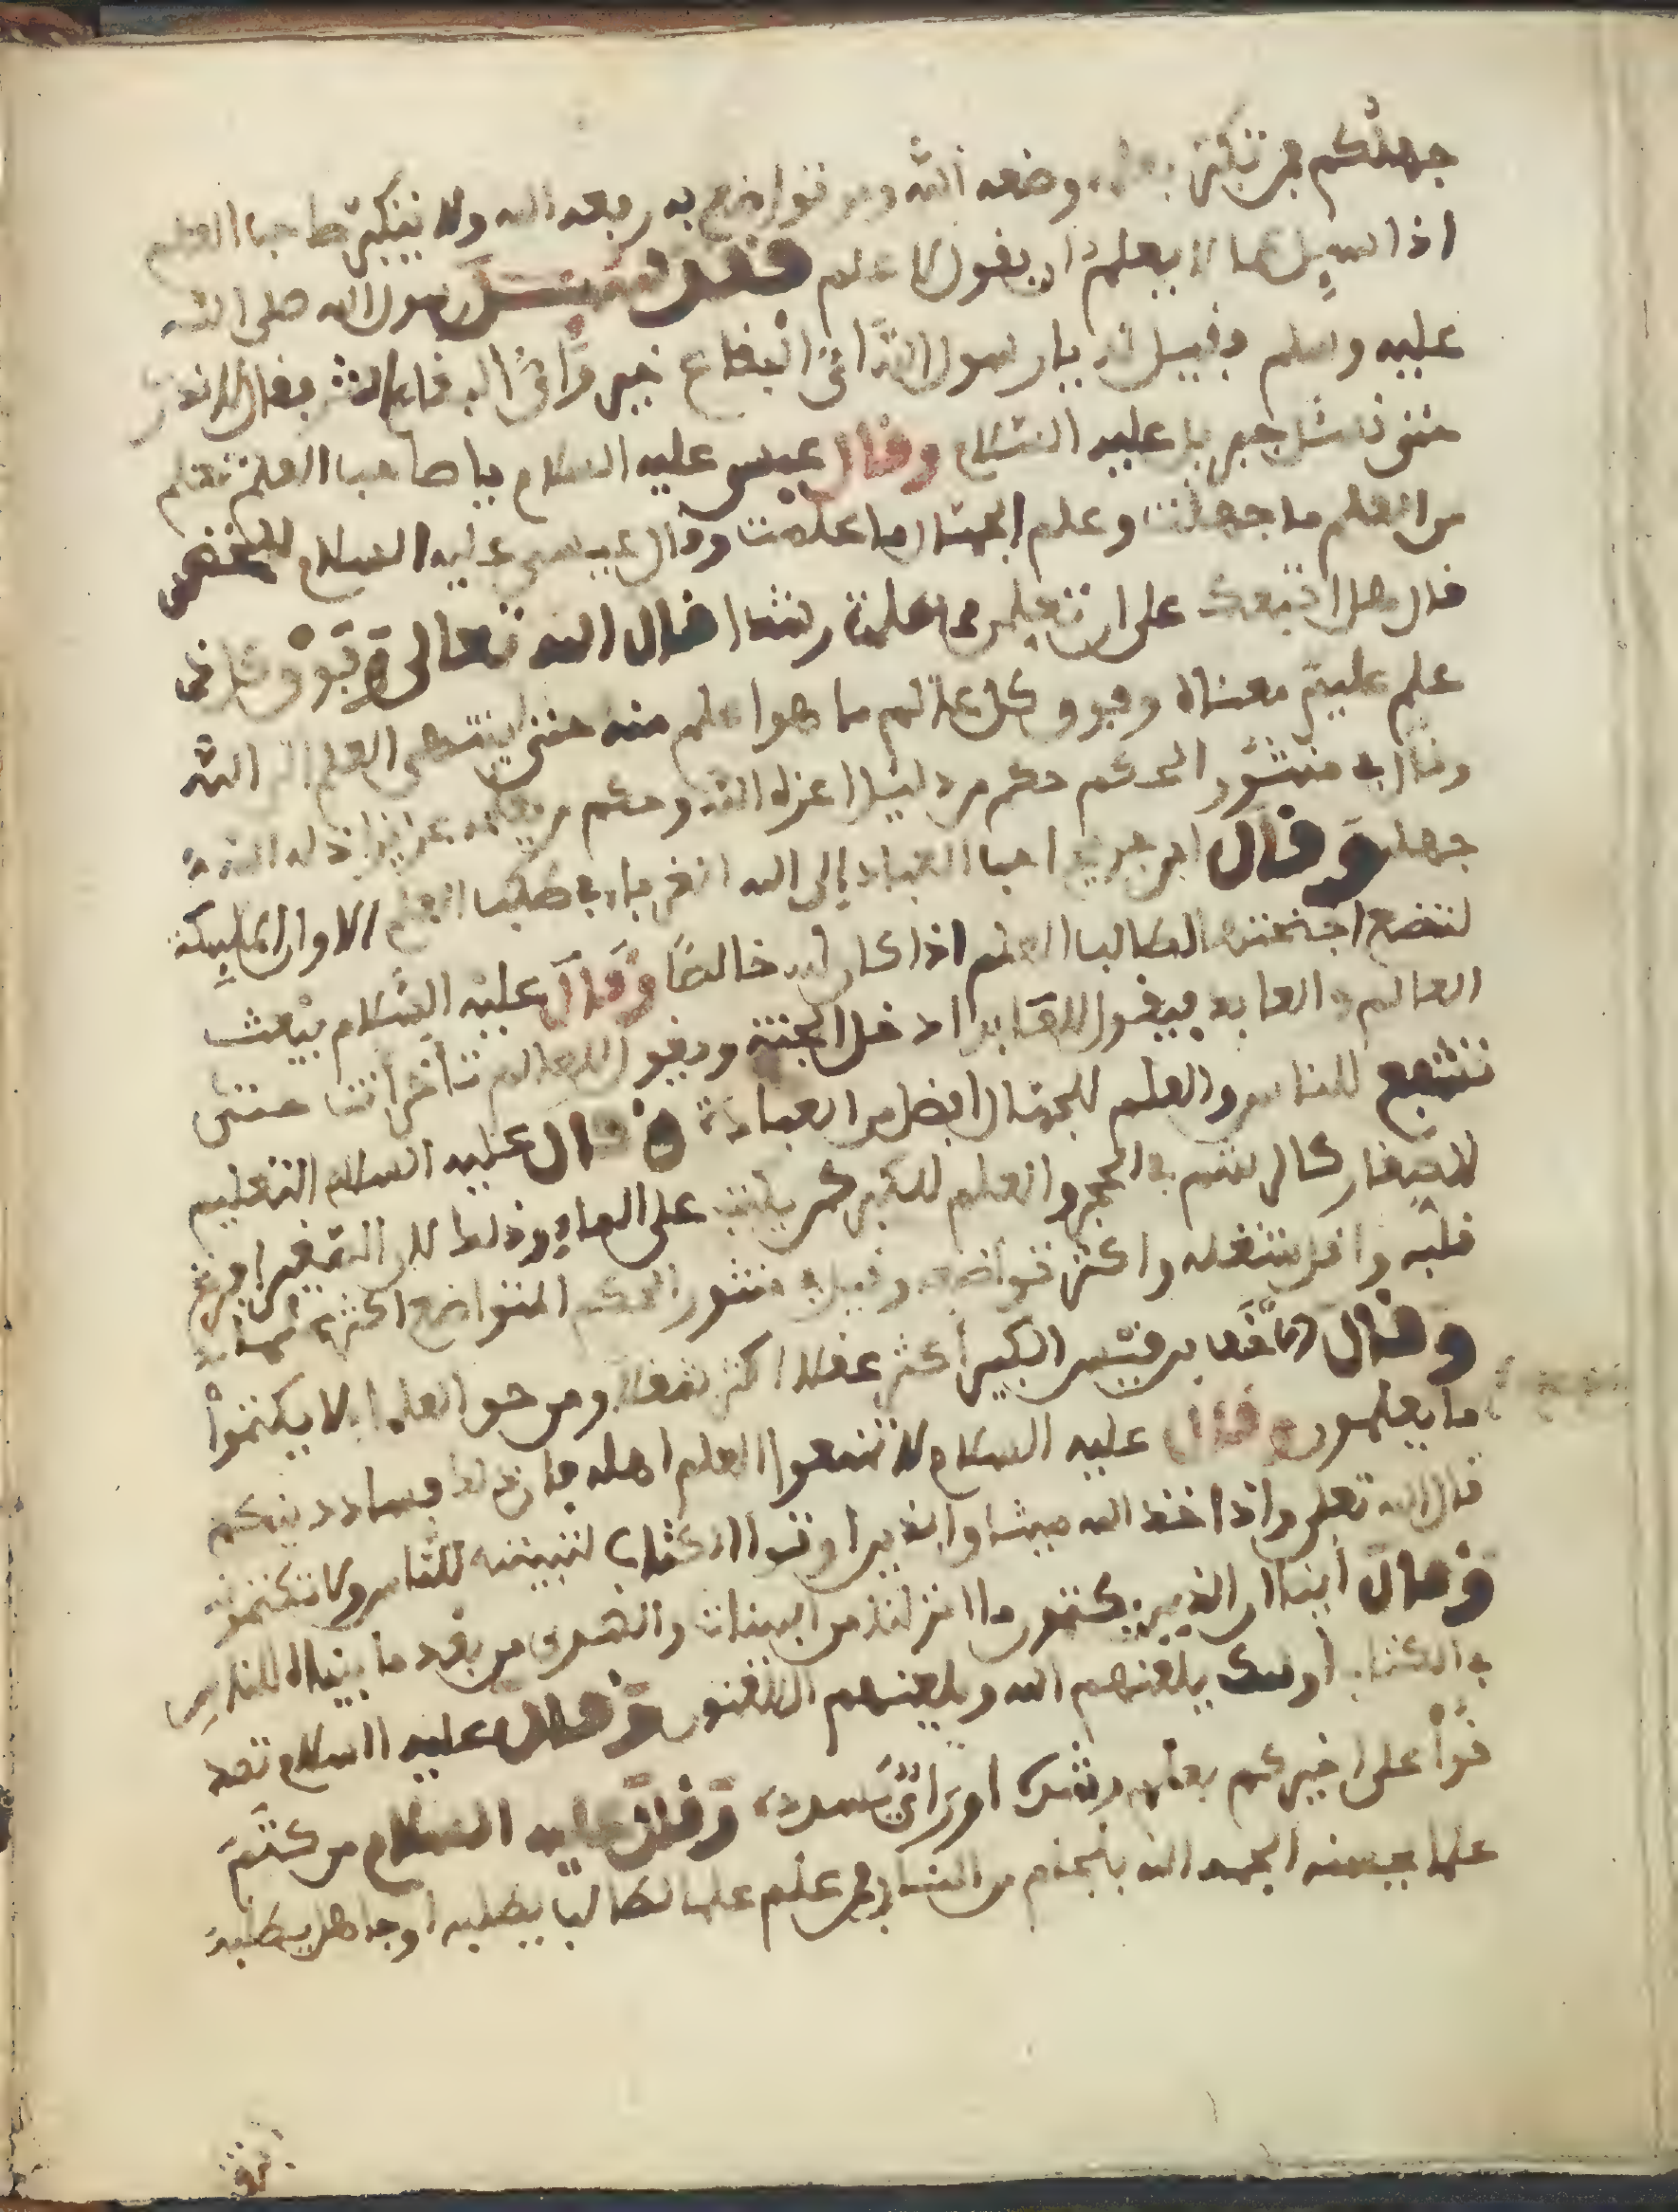 جهلكم فمن تكبر بعلمه وضعه الله ومن تواضع به رفعه الله ولا يتكبر صاحب العلم
اذا سيل عما لا يعلم ان يقول لا اعلم فقد سيل رسول الله صلى الله
عليه وسلم فقيل له يا رسول الله اي البقاع خير واي البقاع شر فقال لا ادري
حتى نسئل جبريل عليه السلام وقال عيسى عليه السلام يا صاحب العلم تعلم
من العلم ما جهلت وعلم الجهال ما علمت وقال عيسى عليه السلام للخضر
قال هل اتبعك على ان تعلمن مما علمت رشدا قال الله تعالى وفوق كل ذي
علم عليم معناه وفوق كل عالم ما هو اعلم منه حتى ينتهي العلم الى الله
وقال في منثور الحكم حكم من ذليلا اعزه الله وحكم من عزيزا اذله الله
جهله وقال ابن جريج احب العباد إلى الله الغرباء في طلب العلم الا وان الملييكة
لتضع اجنحتها لطالب العلم اذا كان لله خالصا وقال عليه السلام يبعث
العالم والعابد فيقول للعابد ادخل الجنة ويقول للعالم تأخر أنت حتى
تشفع للناس والعلم للجهال افضل من العبادة وقال عليه السلام التعليم
للصغار كالرشم في الحجر والعلم للكبير كمن يكتب على الماء وذلك لان الصغير افرغ
قلبه واقل شغله واكثر تواضعه وقيل في منثور الحكم المتواضع اكثرهم علما
وقال الاحنف بن قيس الكبير أكثر عقلا اكثر شغلا ومن حق العلماء الا يكتموا
ما يعلمون وقال عليه السلام لا تمنعوا العلم اهله فان في ذلك فساد دينكم
قال الله تعلى واذ اخذ الله ميثاق الذين اوتوا الكتاب لتبيننه للناس ولا تكتمونه
وقال أيضا ان الذين يكتمون ما انزلنا من البينات والهدى من بعد ما بيناه للناس
في الكتاب أوليك يلعنهم الله ويلعنهم اللعنون وقال عليه السلام تصد
قوا على اخيكم بعلم يرشده اورأي يسدده وقال عليه السلام من كتم
علما يحسنه الجمه الله بلجام من النار ومن علم علما لطالب يطلبه او جاهل يطلبه